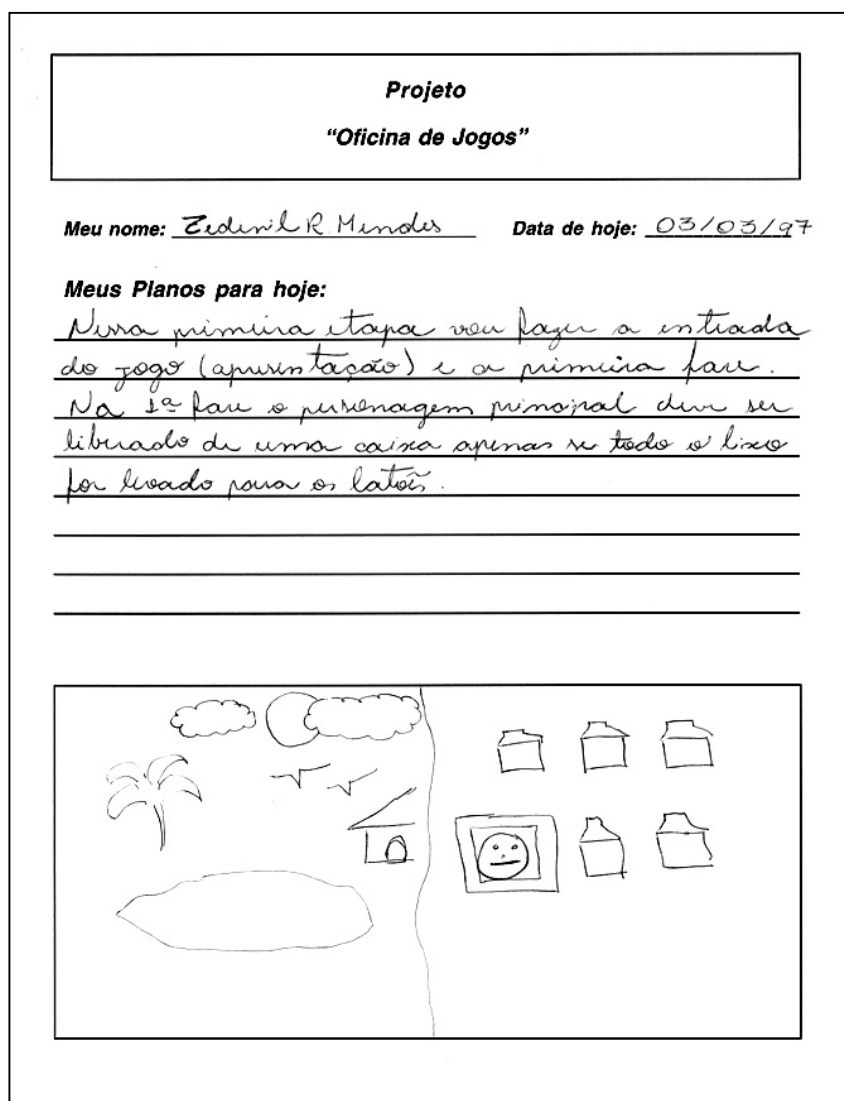 Projeto
“Oficina de Jogos”
Meu nome: Zedenil R. Mendes Data de hoje: 03/03/97
Meus Planos para hoje:
Nessa primeira etapa vou fazer a entrada
do jogo (apresentação) e a primeira fase.
Na 1ª fase o personagem principal deve ser
liberado de uma caixa apenas se todo o lixo
for levado para os latões.